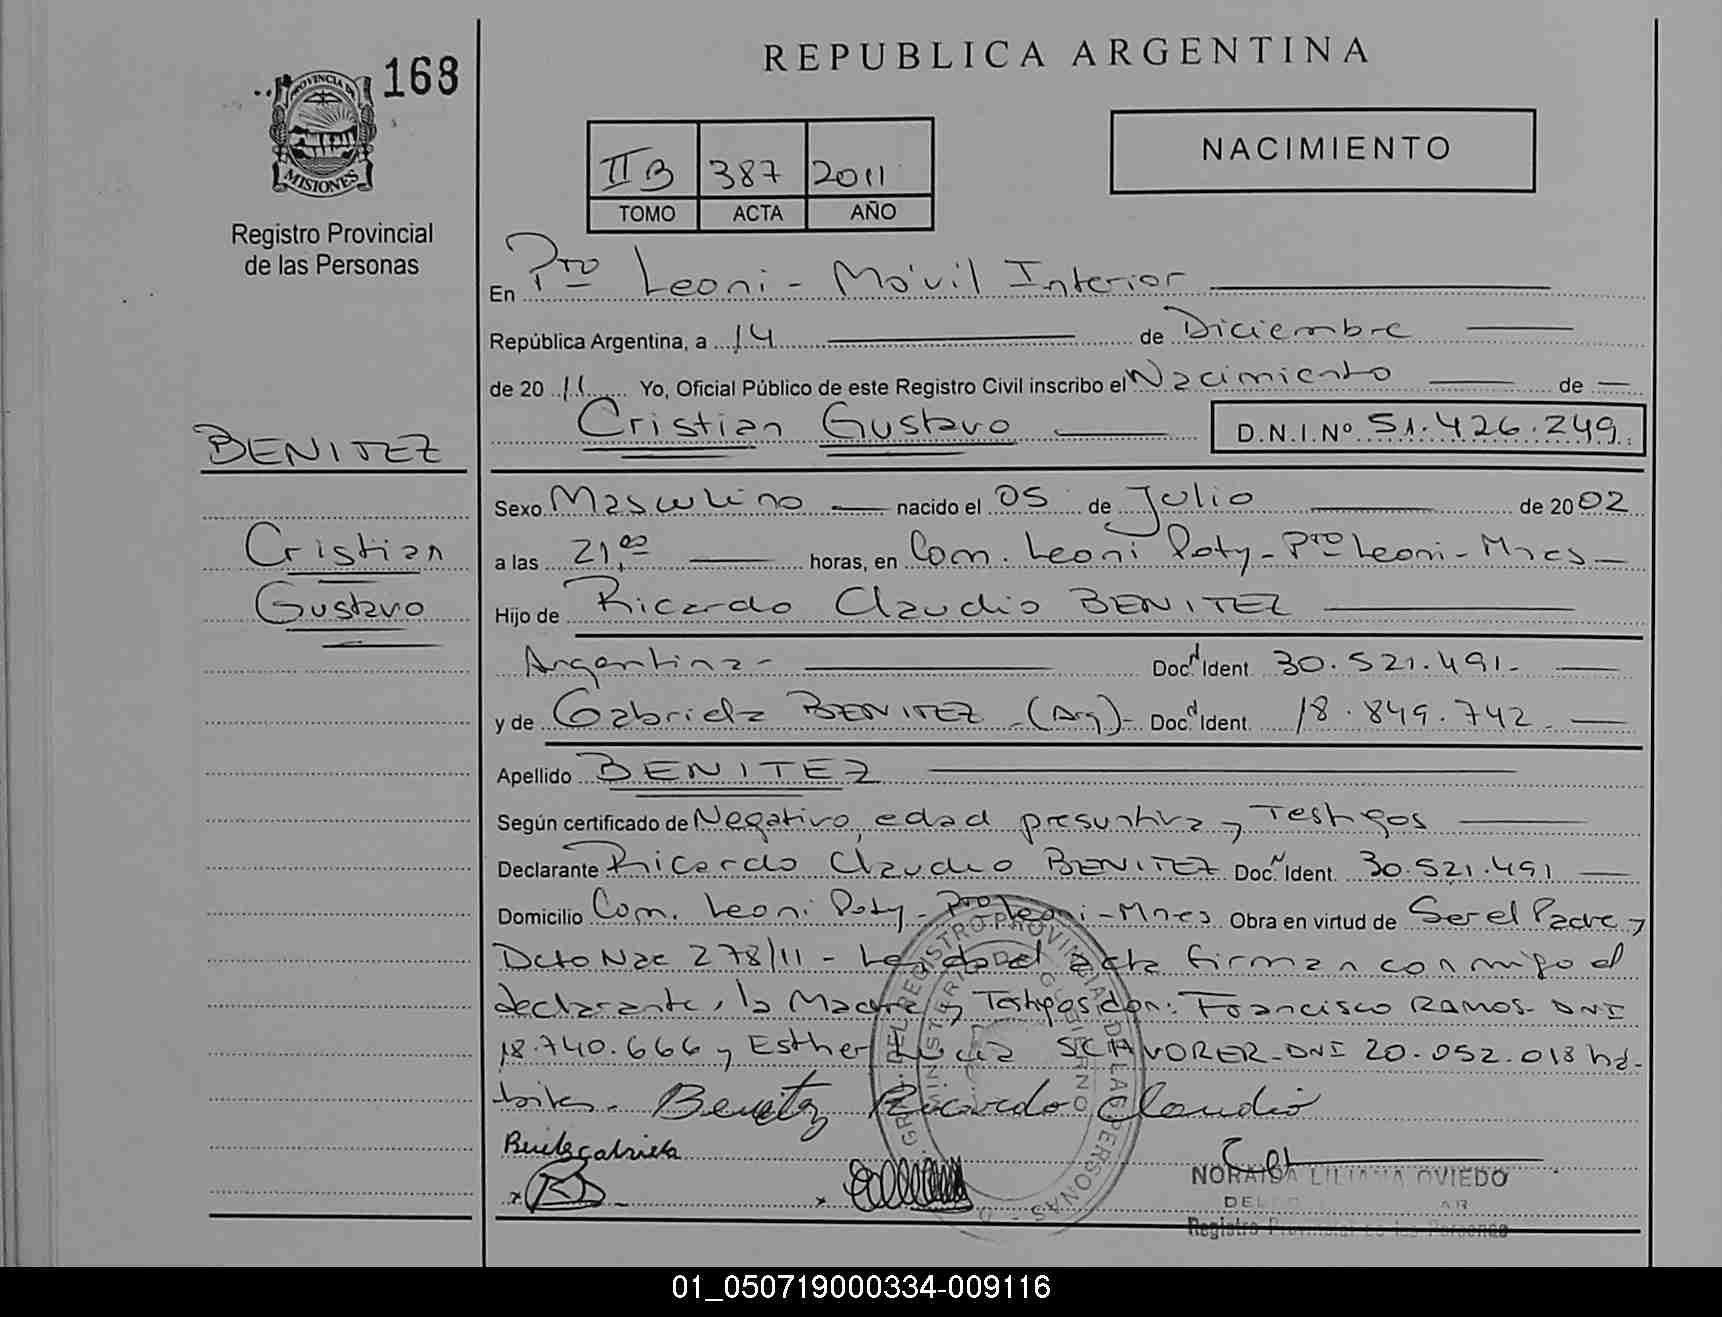 168
PROVINCIA DE
MISIONES
Registro Provincial
de las Personas
BENITEZ
Cristian
Gustavo
REPUBLICA ARGENTINA
NACIMIENTO
II B 387 2011
TOMO ACTA AÑO
En Pto Leoni - Móvil Interior
República Argentina, a 14 de Diciembre
de 20 11 Yo, Oficial Público de este Registro Civil inscribo el Nacimiento de
Cristian Gustavo D.N.I.Nº 51.426.249
Sexo Masculino nacido el 05 de Julio de 2002
a las 21,00 horas, en Com. Leoni Poty - Pto Leoni - Mnes
Hijo de Ricardo Claudio BENITEZ
Argentina - Doc Ident. 30.521.491-
y de Gabriela BENITEZ - (Arg) - Doc Ident. 18.849.742-
Apellido BENITEZ
Según certificado de Negativo, edad presuntiva y Testigos
Declarante Ricardo Claudio BENITEZ Doc. Ident. 30.521.491
Domicilio Com. Leoni Poty - Pto Leoni - Mnes Obra en virtud de Ser el Padre y
Dcto Nac 278/11 - Leida el acta firman conmigo el
declarante, la Madre y Testigos don: Francisco RAMOS - DNI
18.740.666 y Esther Lucia DNI 20.052.018 há-
biles. Benitez Ricardo Claudio
Gabriela
NORAIDA LILIANA OVIEDO
Registro Provincial de las Personas
REGISTRO PROVINCIAL DE LAS PERSONAS
01_050719000334-009116